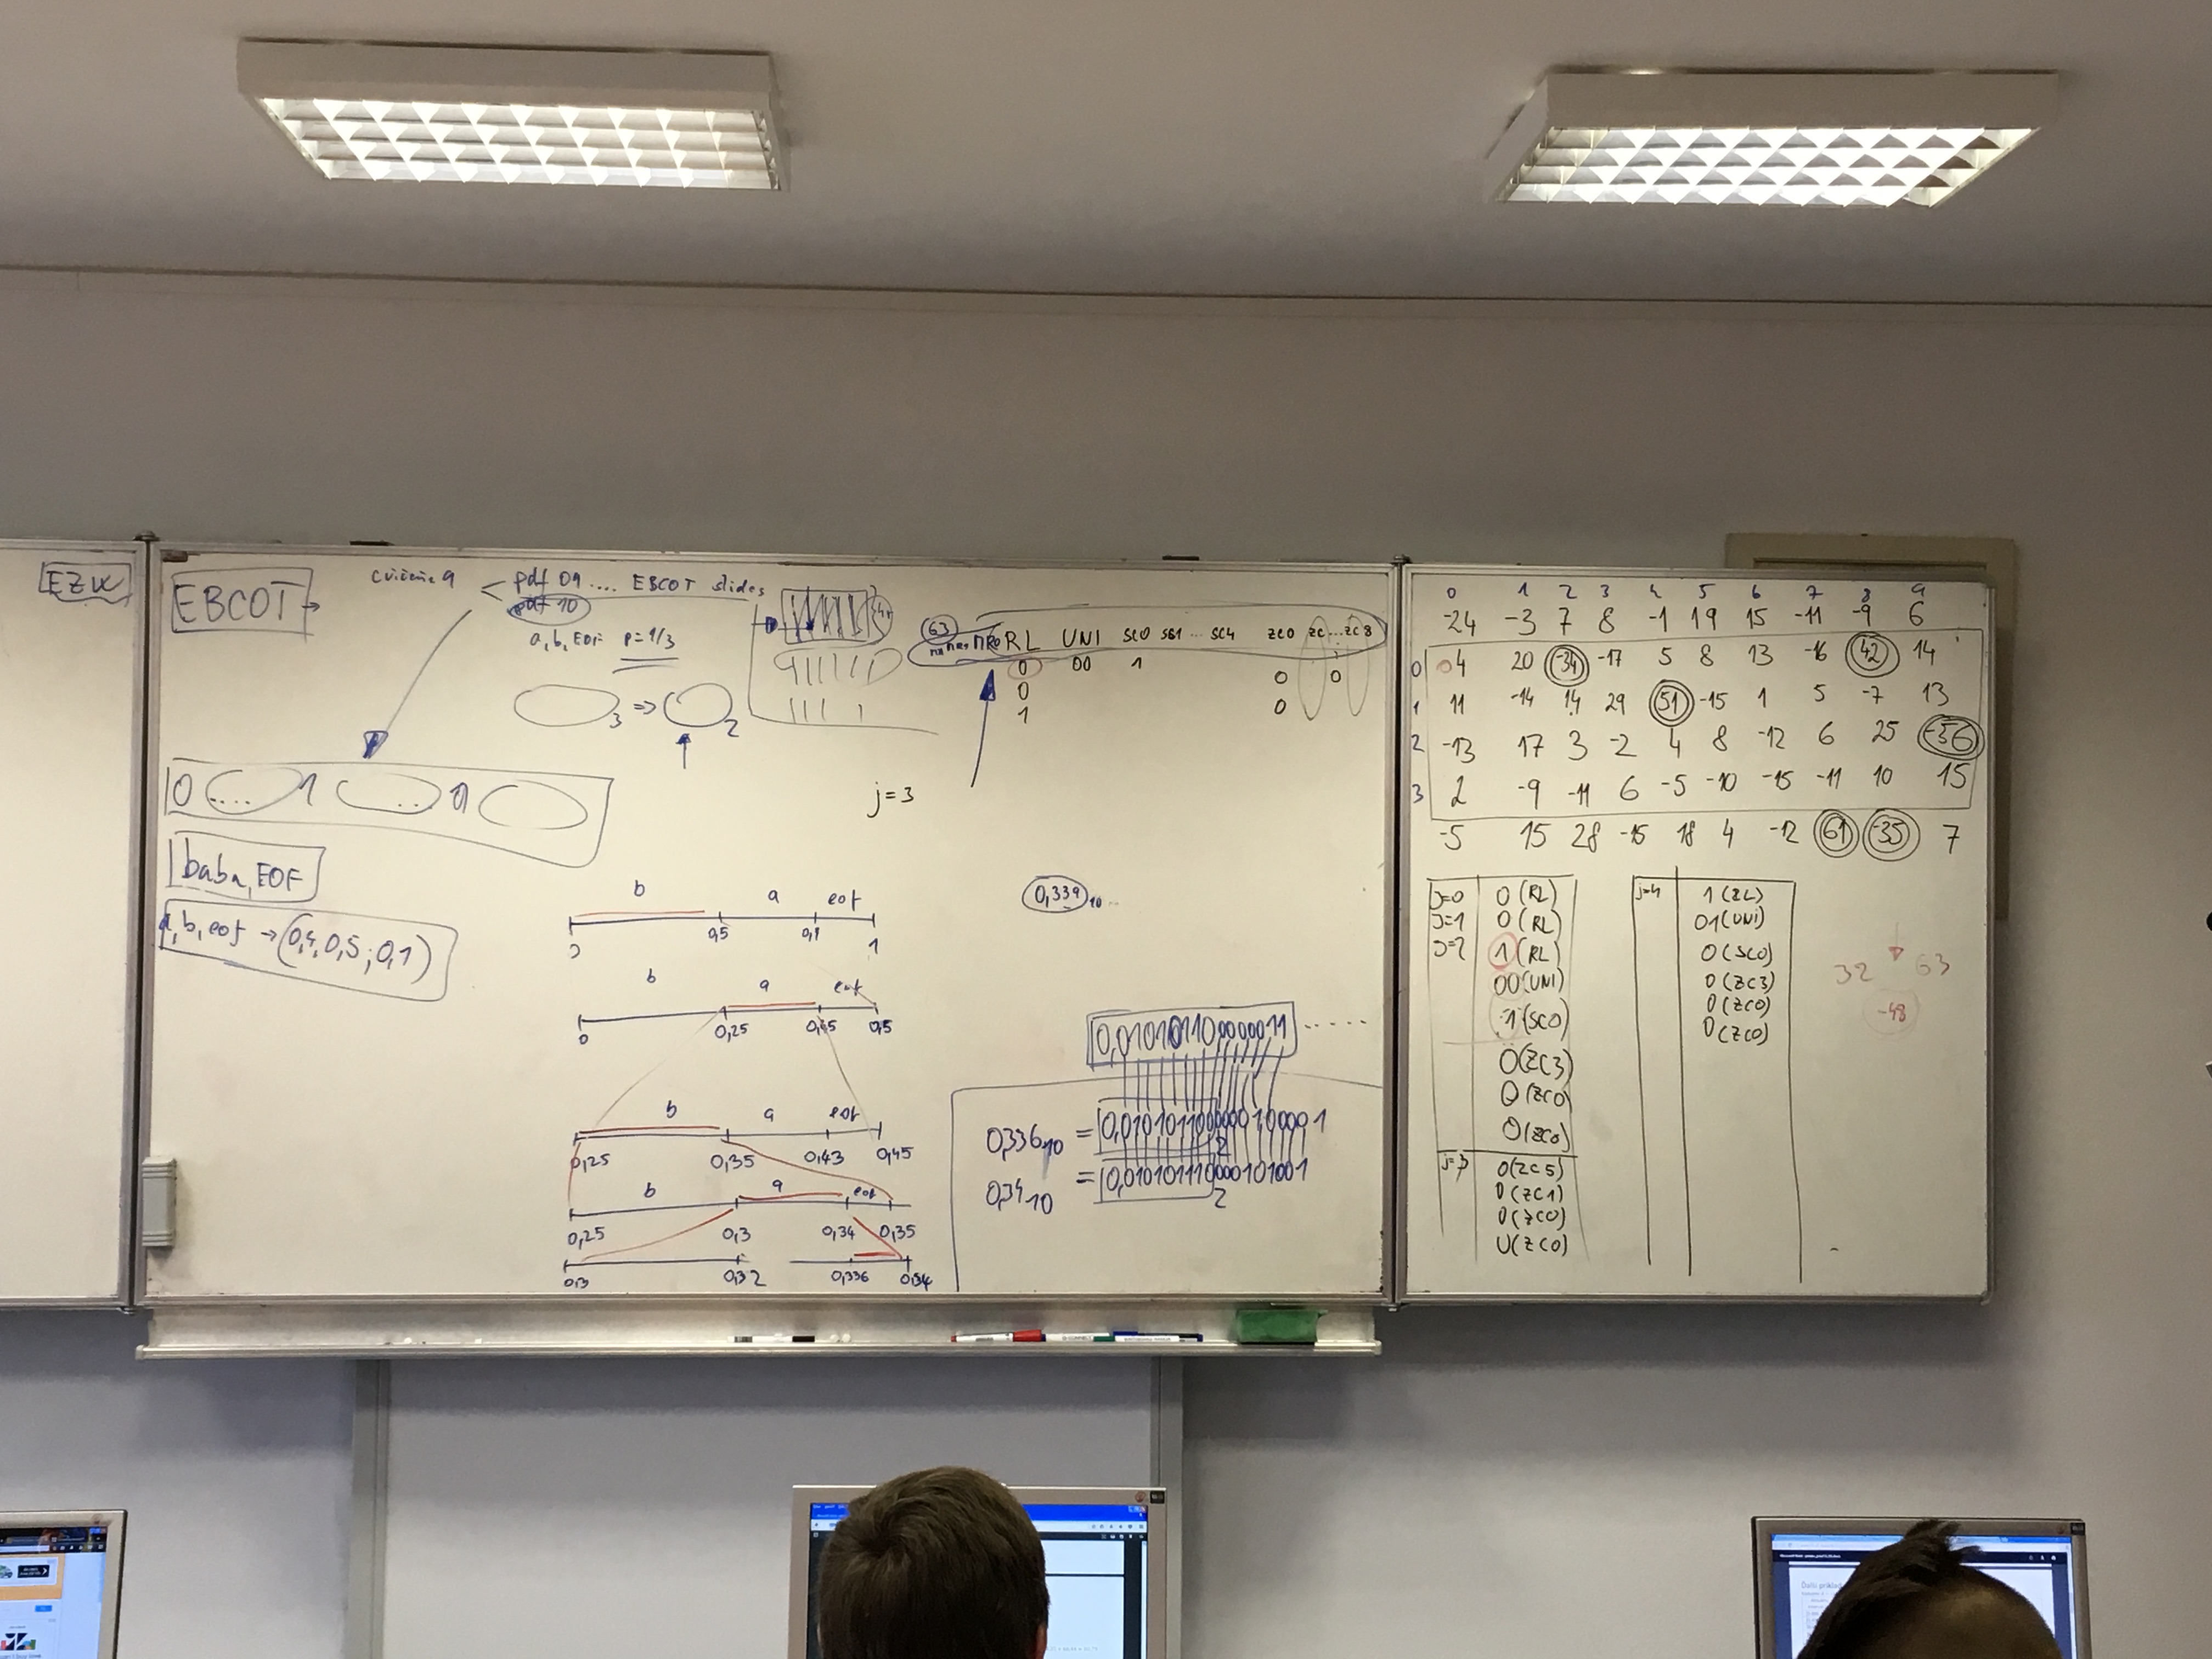 EZW
EBCOT
cvičenie 9
pdf 09 .... EBCOT slides
pdf 10
a, b, EOF p=1/3
3 => 2
0 .... 1 .. 0
baba, EOF
a, b, eof → (0,4, 0,5; 0,1)
63
RL UNI SC0 SC1 ... SC4 ZC0 ZC...ZC8
0 00 1 0 0
0 0
1
j=3
b a eof
0,5 1
b a eof
0 0,25 0,45 0,5
b a eof
0,25 0,35 0,43 0,45
b a eof
0,25 0,3 0,34 0,35
0,3 0,32 0,336 0,34
0,339 10
0,336 10 =
0,34 10 =
0 1 2 3 4 5 6 7 8 9
-24 -3 7 8 -1 19 15 -11 -9 6
0 4 20 -34 -17 5 8 13 -16 42 14
1 11 -14 14 29 51 -15 1 5 -7 13
2 -13 17 3 -2 4 8 -12 6 25 -36
3 2 -9 -11 6 -5 -10 -15 -11 10 15
-5 15 28 -15 18 4 -12 61 -35 7
j=0 0 (RL)
j=1 0 (RL)
j=2 1 (RL)
00 (UNI)
1 (SC0)
0 (ZC3)
0 (ZC0)
0 (ZC0)
j=3 0 (ZC5)
0 (ZC1)
0 (ZC0)
0 (ZC0)
j=4 1 (ZL)
01 (UNI)
0 (SC0)
0 (ZC3)
0 (ZC0)
0 (ZC0)
32 63
-48